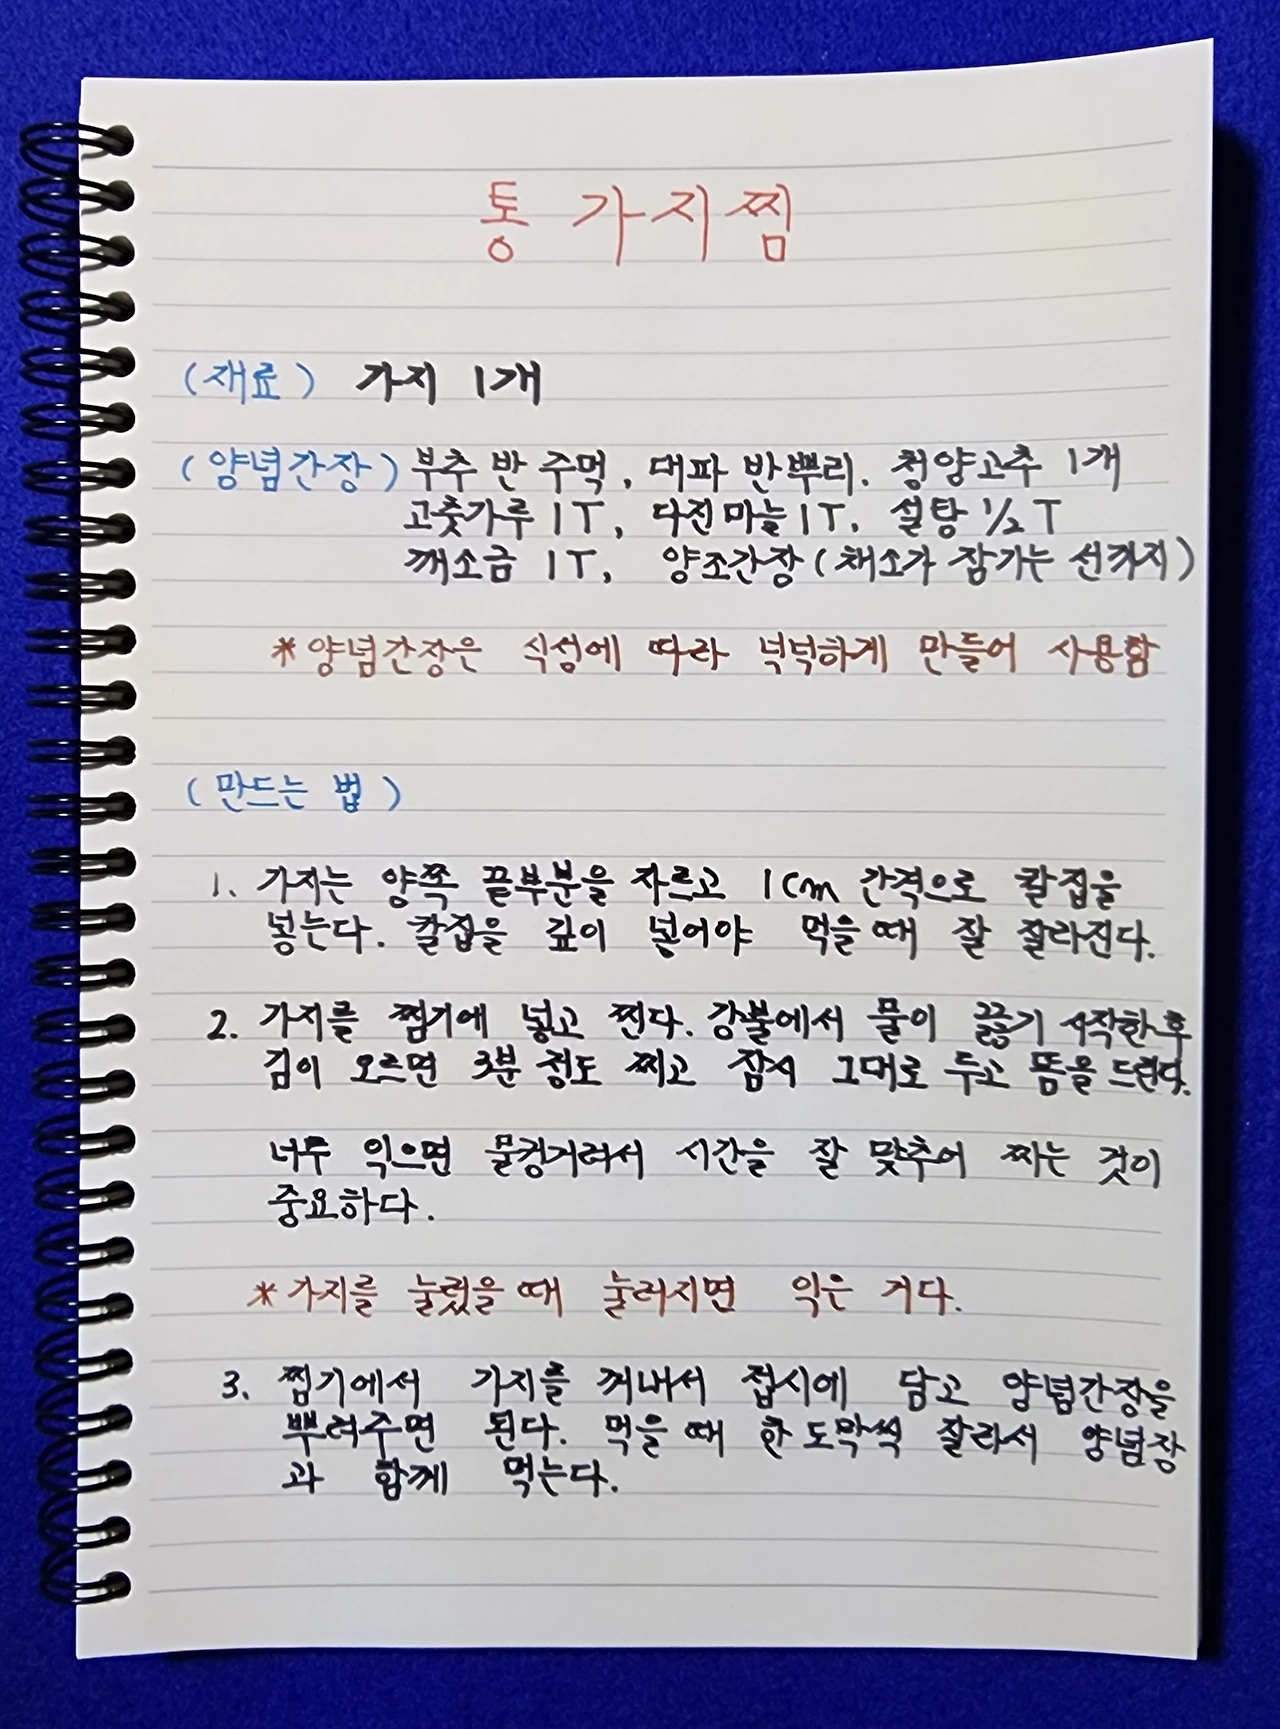 통 가지찜
(재료) 가지 1개
(양념간장) 부추 반 주먹, 대파 반뿌리. 청양고추 1개
고춧가루 1T, 다진마늘 1T, 설탕 1/2 T
깨소금 1T, 양조간장 (채소가 잠기는 선까지)
*양념간장은 식성에 따라 넉넉하게 만들어 사용함
(만드는 법)
1. 가지는 양쪽 끝부분을 자르고 1cm 간격으로 칼집을
넣는다. 칼집을 깊이 넣어야 먹을때 잘 잘라진다.
2. 가지를 찜기에 넣고 찐다. 강불에서 물이 끓기 시작한후
김이 오르면 3분 정도 찌고 잠시 그대로 두고 뜸을 드린다.
너무 익으면 물컹거려서 시간을 잘 맞추어 찌는 것이
중요하다.
*가지를 눌렀을때 눌러지면 익은 거다.
3. 찜기에서 가지를 꺼내서 접시에 담고 양념간장을
뿌려주면 된다. 먹을때 한도막씩 잘라서 양념장
과 함께 먹는다.